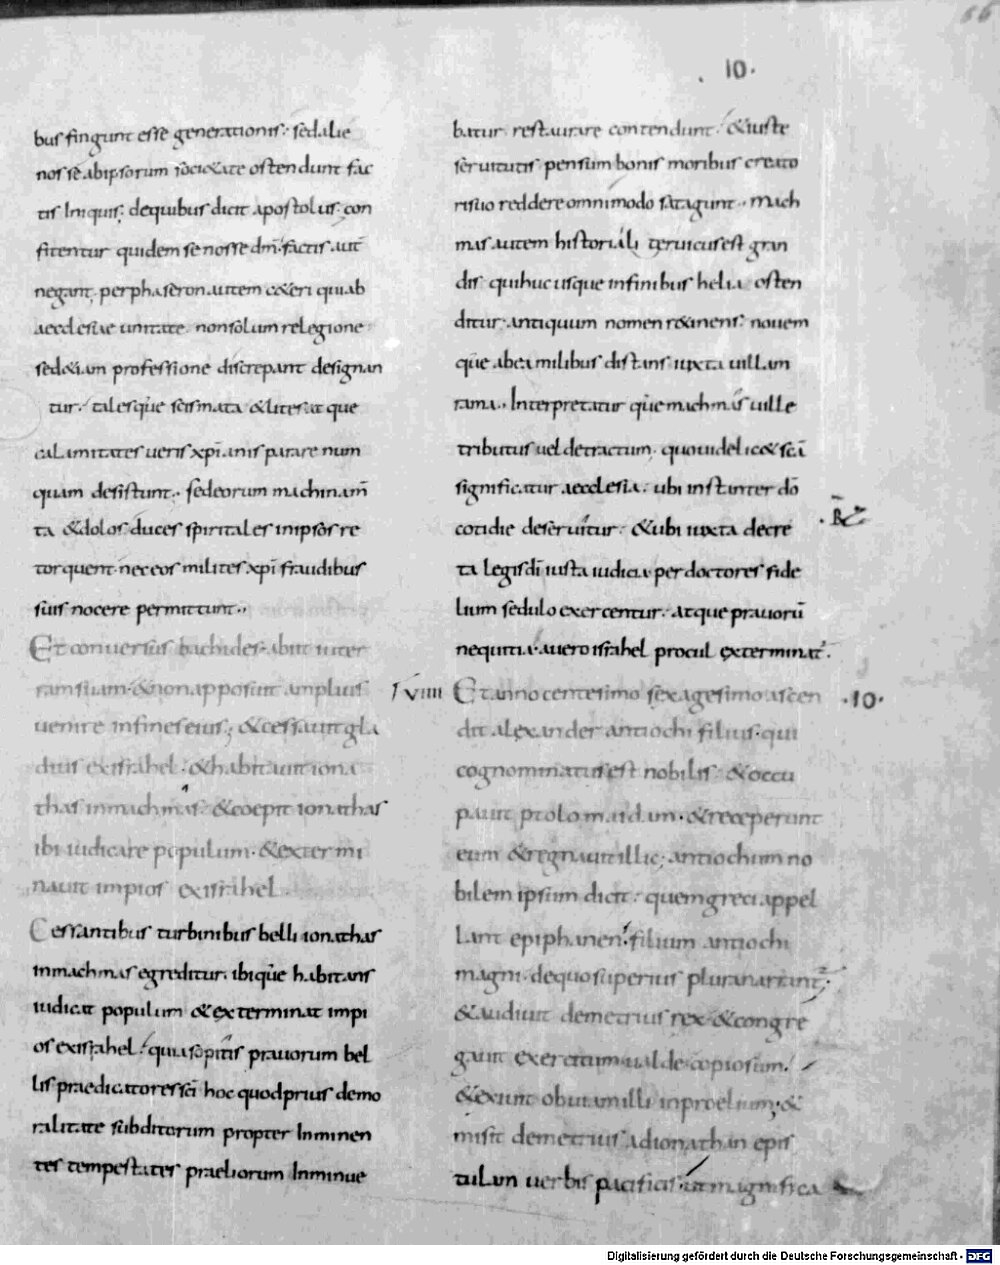 66
. 10 .
bus fingunt esse generationis. sed alie
nos se ab ipsorum societate ostendunt fac
tis Iniquis; de quibus dicit apostolus; con
fitentur quidem se nosse dm̄. factis aut̄
negant, per phaseron autem ceteri qui ab
aecclesiae unitate non solum relegione
sed &iam professione discrepant designan
tur. tales que scismata & lites at que
calamitates ueris xp̄ianis parare num
quam desistunt.. sed eorum machinam̄
ta & dolos duces spiritales in ipsos re
torquent. nec eos milites xp̄i fraudibus
suis nocere permittunt..
Et conuersus bachides. abiit in ter
ram suam. & non apposuit amplius
uenire in fines eius; & cessauit gla
dius ex israhel. & habitauit iona
thas in machmas. & coepit ionathas
ibi iudicare populum. & extermi
nauit impios ex israhel.
Cessantibus turbinibus belli ionathas
in machmas egreditur. ibi que habitans
iudicat populum & exterminat impi
os ex israhel. quia sopitis prauorum bel
lis praedicatores sc̄i hoc quod prius de mo
ralitate subditorum propter Inminen
tes tempestates praeliorum Inminue
batur restaurare contendunt. & iuste
seruitutis pensum bonis moribus creato
ri suo reddere omnimodo satagunt.. mach
mas autem historiali ter uicus est gran
dis qui huc usque in finibus helia osten
ditur. antiquum nomen r&inens. nouem
que ab ea milibus distans iuxta uillam
rama.. Interpretatur que machmas uille
tributus uel detractum. quo uidelic& sc̄a
significatur aecclesia. ubi instanter dō
cotidie deseruitur. & ubi iuxta decre
ta legis dī iusta iudicia per doctores fide
lium sedulo exercentur. atque prauorū
nequitia a uero israhel procul exterminat.
IVIIII Et anno centesimo sexagesimo ascen .10.
dit alexander antiochi filius. qui
cognominatus est nobilis. & occu
pauit ptolomaidam. & receperunt
eum & regnauit illic; antiochum no
bilem ipsum dicit. quem greci appel
lant epiphanen. filium antiochi
magni. de quo superius plura narrant;
& audiuit demetrius rex & congre
gauit exercitum ualde copiosum.
& exiuit obuiam illi in proelium; &
misit demetrius ad ionathan epis
tulam uerbis pacificis ut magnifica
Digitalisierung gefördert durch die Deutsche Forschungsgemeinschaft - DFG